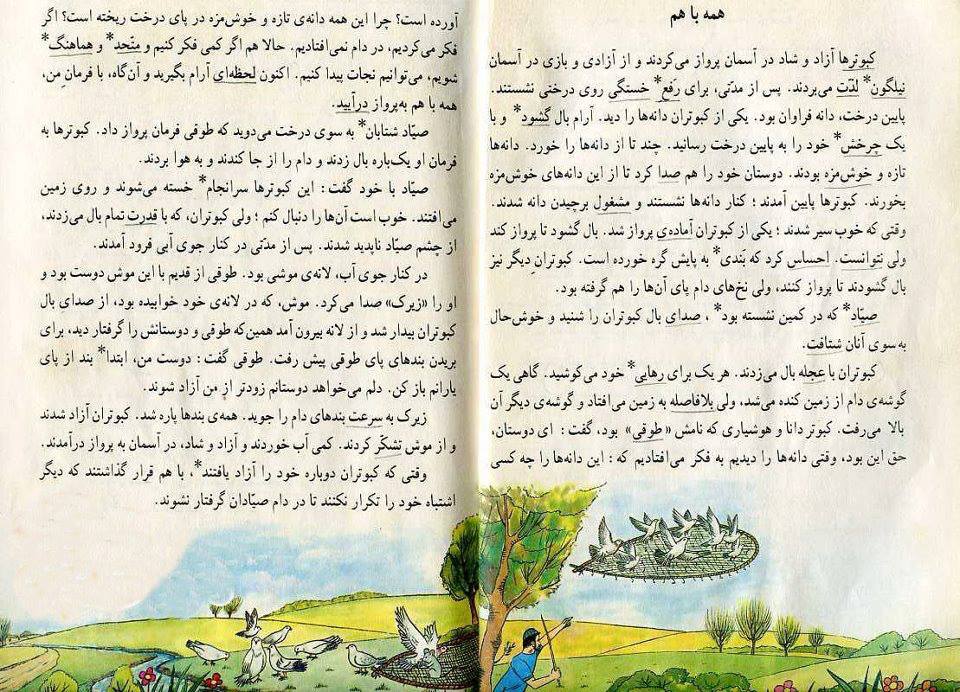 همه با هم
کبوترها آزاد و شاد در آسمان پرواز می‌کردند و از آزادی و بازی در آسمان
نیلگون* لذّت می‌بردند. پس از مدّتی، برای رَفع* خستگی روی درختی نشستند.
پایین درخت، دانه فراوان بود. یکی از کبوتران دانه‌ها را دید. آرام بال گشود* و با
یک چرخش* خود را به پایین درخت رسانید. چند تا از دانه‌ها را خورد. دانه‌ها
تازه و خوش‌مزه بودند. دوستان خود را هم صدا کرد تا از این دانه‌های خوش‌مزه
بخورند. کبوترها پایین آمدند؛ کنار دانه‌ها نشستند و مشغول برچیدن دانه شدند.
وقتی که خوب سیر شدند؛ یکی از کبوتران آماده‌ی پرواز شد. بال گشود تا پرواز کند
ولی نتوانست. احساس کرد که بَندی* به پایش گره خورده است. کبوترانِ دیگر نیز
بال گشودند تا پرواز کنند، ولی نخ‌های دام پای آن‌ها را هم گرفته بود.
صیّاد* که در کمین نشسته بود*، صدای بال کبوتران را شنید و خوش‌حال
به سوی آنان شتافت.
کبوتران با عجله بال می‌زدند. هر یک برای رهایی* خود می‌کوشید. گاهی یک
گوشه‌ی دام از زمین کنده می‌شد، ولی بلافاصله به زمین می‌افتاد و گوشه‌ی دیگر آن
بالا می‌رفت. کبوتر دانا و هوشیاری که نامش «طوقی» بود، گفت: ای دوستان،
حق این بود، وقتی دانه‌ها را دیدیم به فکر می‌افتادیم که: این دانه‌ها را چه کسی
آورده است؟ چرا این همه دانه‌ی تازه و خوش‌مزه در پای درخت ریخته است؟ اگر
فکر می‌کردیم، در دام نمی‌افتادیم. حالا هم اگر کمی فکر کنیم و متّحد* و هماهنگ*
شویم، می‌توانیم نجات پیدا کنیم. اکنون لحظه‌ای آرام بگیرید و آن‌گاه، با فرمانِ من،
همه با هم به‌پرواز درآیید.
صیّاد شتابان* به سوی درخت می‌دوید که طوقی فرمان پرواز داد. کبوترها به
فرمان او یک‌باره بال زدند و دام را از جا کندند و به هوا بردند.
صیّاد با خود گفت: این کبوترها سرانجام* خسته می‌شوند و روی زمین
می‌افتند. خوب است آن‌ها را دنبال کنم؛ ولی کبوتران، که با قدرت تمام بال می‌زدند،
از چشم صیّاد ناپدید شدند. پس از مدّتی در کنار جوی آبی فرود آمدند.
در کنار جوی آب، لانه‌ی موشی بود. طوقی از قدیم با این موش دوست بود و
او را «زیرک» صدا می‌کرد. موش، که در لانه‌ی خود خوابیده بود، از صدای بال
کبوتران بیدار شد و از لانه بیرون آمد همین‌که طوقی و دوستانش را گرفتار دید، برای
بریدن بندهای پای طوقی پیش رفت. طوقی گفت: دوست من، ابتدا* بند از پای
یارانم باز کن. دلم می‌خواهد دوستانم زودتر از من آزاد شوند.
زیرک به سرعت بندهای دام را جوید. همه‌ی بندها پاره شد. کبوتران آزاد شدند
و از موش تشکّر کردند. کمی آب خوردند و آزاد و شاد، در آسمان به پرواز درآمدند.
وقتی که کبوتران دوباره خود را آزاد یافتند*، با هم قرار گذاشتند که دیگر
اشتباه خود را تکرار نکنند تا در دام صیّادان گرفتار نشوند.